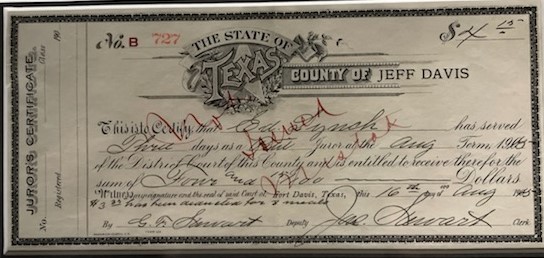 No. B 727
THE STATE OF
TEXAS
$4 15
COUNTY OF JEFF DAVIS
JUROR'S CERTIFICATE
No.
Registered
Class
190
This is to Certify, that Lynch has served
Three days as a Juror at the Aug Term 19
of the District Court of this County and is entitled to receive therefor the
sum of Four and 15/100 Dollars
Witness my signature and the seal of said Court at Fort Davis, Texas, this 16th day of Aug
has been deducted for meals
By G. F. Stewart Stewart Clerk